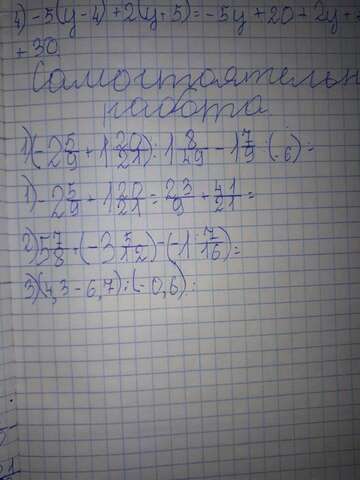 4) -5(y-4)+2(y+5)=-5y+20+2y+
+30
Самостоятельн
работа
1)(-2 5/9 + 1 20/21) : 1 8/49 - 1 7/9 · (-6)=
1)-2 5/9 + 1 20/21 = 23/9 + 41/21 =
2) 5 7/8 + (-3 5/12) - (-1 7/16)=
3)(4,3-6,7):(-0,6):